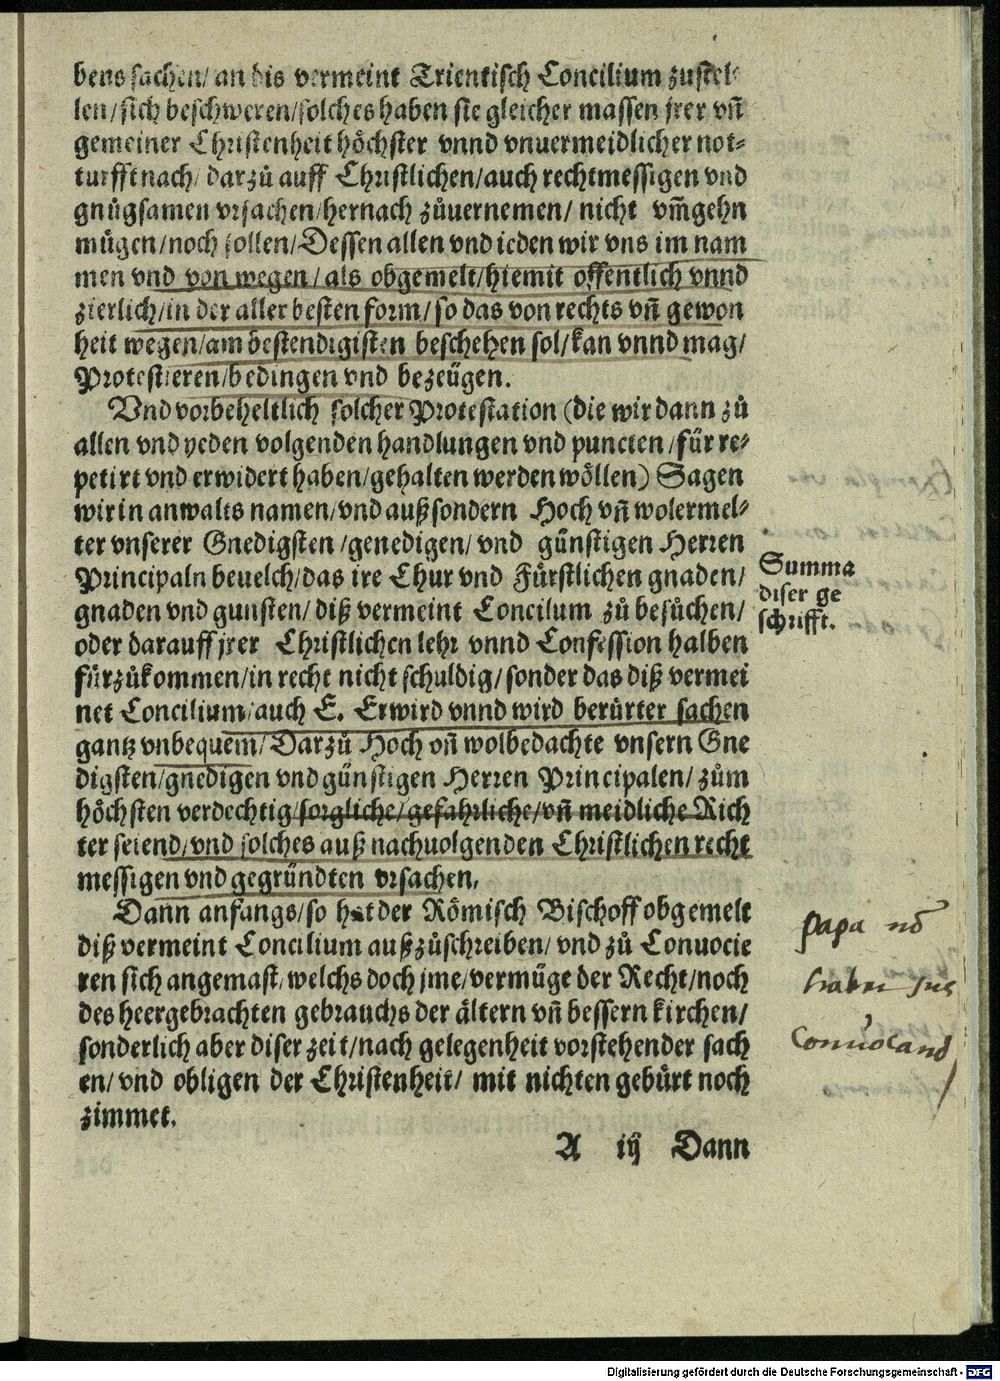 bens sachen/ an dis vermeint Trientisch Concilium zustel⸗
len/ sich beschweren/ solches haben sie gleicher massen jrer vñ
gemeiner Christenheit höchster vnnd vnuermeidlicher not⸗
turfft nach/ darzů auff Christlichen/ auch rechtmessigen vnd
gnůgsamen vrsachen/ hernach zůuernemen/ nicht vm̃gehn
mügen/ noch sollen/ Dessen allen vnd ieden wir vns im nam
men vnd von wegen/ als obgemelt/ hiemit offentlich vnnd
zierlich/ in der aller besten form/ so das von rechts vñ gewon
heit wegen/ am bestendigisten beschehen sol/ kan vnnd mag/
Protestieren/ bedingen vnd bezeügen.
Vnd vorbeheltlich solcher Protestation (die wir dann zů
allen vnd yeden volgenden handlungen vnd puncten/ für re⸗
petirt vnd erwidert haben/ gehalten werden wöllen) Sagen
wir in anwalts namen/ vnd auß sondern Hoch vñ wolermel⸗
ter vnserer Gnedigsten/ genedigen/ vnd günstigen Herren
Principaln beuelch/ das ire Chur vnd Fürstlichen gnaden/
gnaden vnd gunsten/ diß vermeint Concilum zů besůchen/
oder darauff jrer Christlichen lehr vnnd Confession halben
fürzůkommen/ in recht nicht schuldig/ sonder das diß vermei
net Concilium/ auch E. Erwird vnnd wird berürter sachen
gantz vnbequem/ Darzů Hoch vñ wolbedachte vnsern Gne
digsten/ gnedigen vnd günstigen Herren Principalen/ zům
höchsten verdechtig/ sorgliche/ gefahrliche/ vñ meidliche Rich
ter seiend/ vnd solches auß nachuolgenden Christlichen recht
messigen vnd gegründten vrsachen,
Summa
diser ge
schrifft.
Dann anfangs/ so hat der Römisch Bischoff obgemelt
diß vermeint Concilium außzůschreiben/ vnd zů Conuocie
ren sich angemast/ welchs doch jme/ vermüge der Recht/ noch
des heergebrachten gebrauchs der ältern vñ bessern kirchen/
sonderlich aber diser zeit/ nach gelegenheit vorstehender sach
en/ vnd obligen der Christenheit/ mit nichten gebürt noch
zimmet.
papa nō
habet Jus
Conuocand
A iij Dann
Digitalisierung gefördert durch die Deutsche Forschungsgemeinschaft - DFG